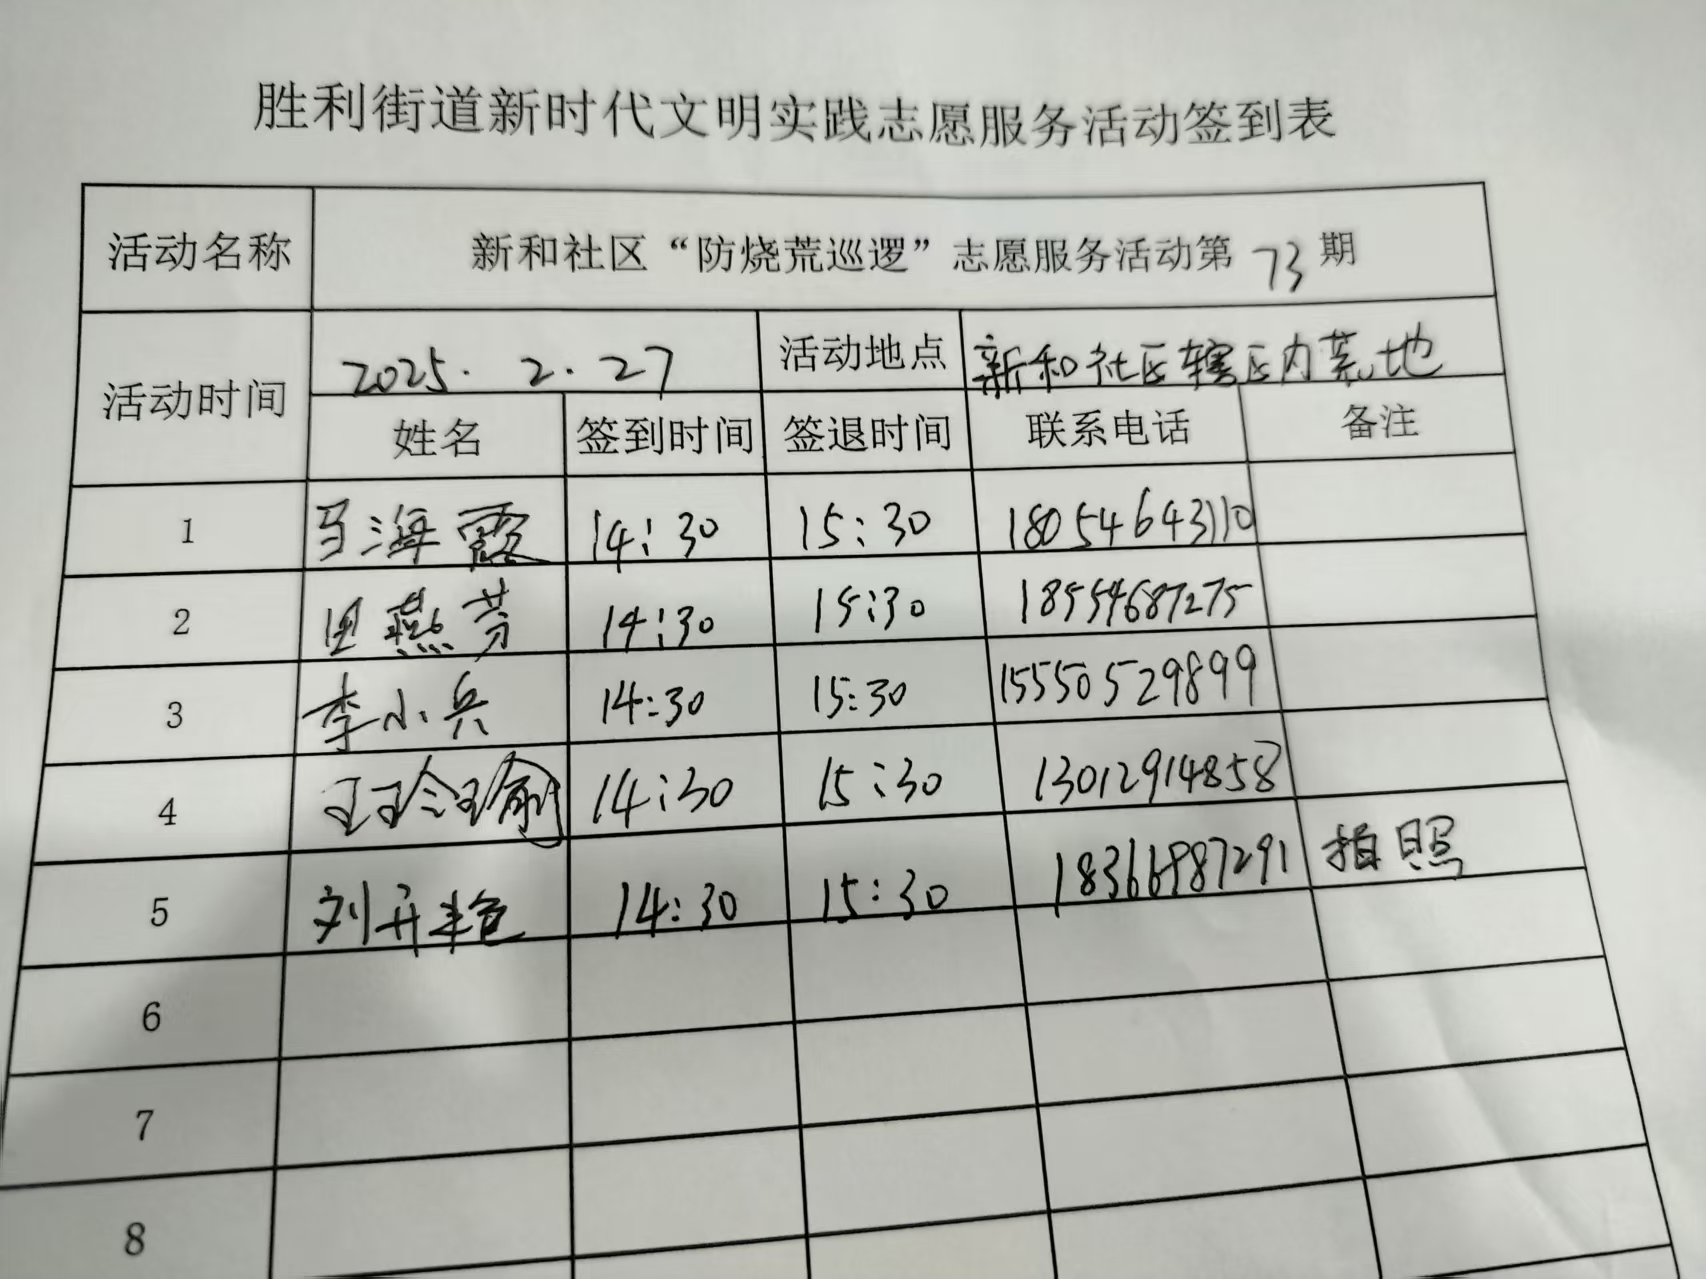 胜利街道新时代文明实践志愿服务活动签到表
活动名称 新和社区“防烧荒巡逻”志愿服务活动第73期
活动时间 2025.2.27 活动地点 新和社区辖区内荒地
姓名 签到时间 签退时间 联系电话 备注
1 马海霞 14:30 15:30 18054643110
2 田燕芳 14:30 15:30 18554687275
3 李小兵 14:30 15:30 15550529899
4 王玲瑜 14:30 15:30 13012914858
5 刘开艳 14:30 15:30 18366987291 拍照
6
7
8